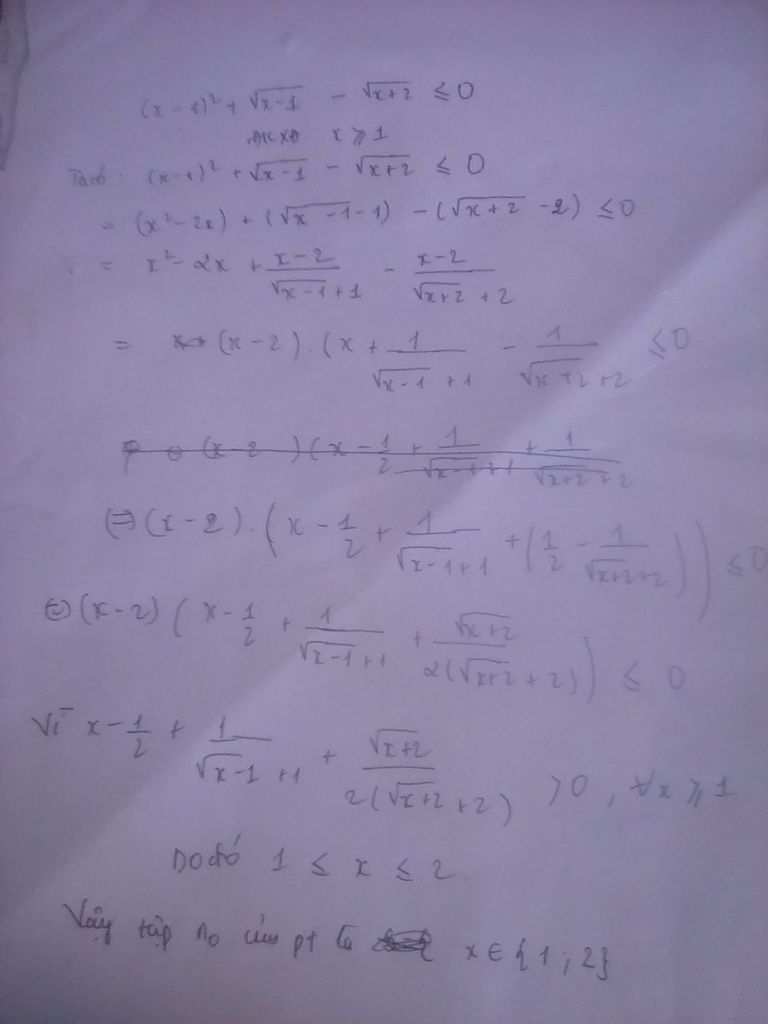 (x-1)² + √(x-1) - √(x+2) ≤ 0
ĐKXĐ x ⩾ 1
Ta có: (x-1)² + √(x-1) - √(x+2) ≤ 0
= (x²-2x) + (√(x-1) - 1) - (√(x+2) - 2) ≤ 0
= x² - 2x + (x-2)/(√(x-1)+1) - (x-2)/(√(x+2)+2)
= (x-2).(x + 1/(√(x-1)+1) - 1/(√(x+2)+2) ≤ 0
(x-2)(x - 1/2 + 1/(√(x-1)+1) + 1/(√(x+2)+2)
⇔ (x-2).(x - 1/2 + 1/(√(x-1)+1) + (1/2 - 1/(√(x+2)+2))) ≤ 0
⇔ (x-2)(x - 1/2 + 1/(√(x-1)+1) + √(x+2)/(2(√(x+2)+2))) ≤ 0
Vì x - 1/2 + 1/(√x-1+1) + √(x+2)/(2(√(x+2)+2)) > 0, ∀x ⩾ 1
Do đó 1 ≤ x ≤ 2
Vậy tập no của pt là x ∈ {1; 2}